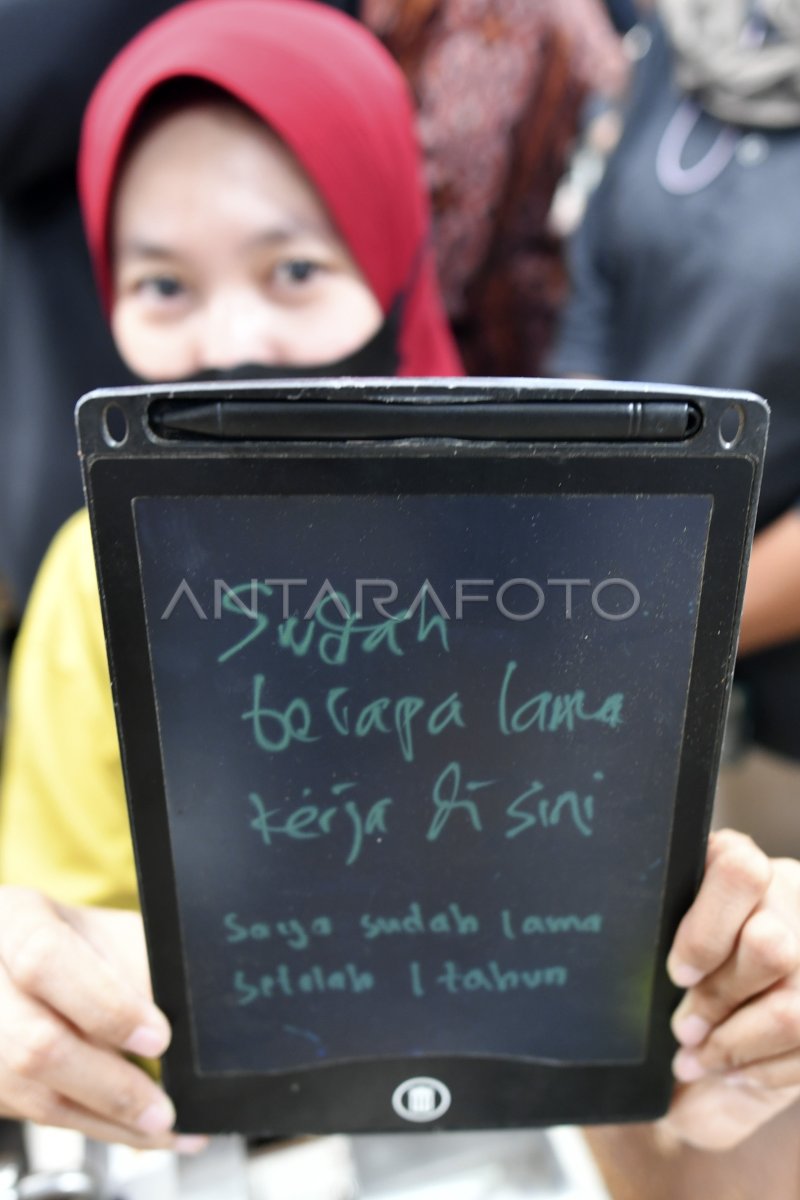 ANTARAFOTO
Sudah
berapa lama
kerja di sini
Saya sudah lama
setelah 1 tahun